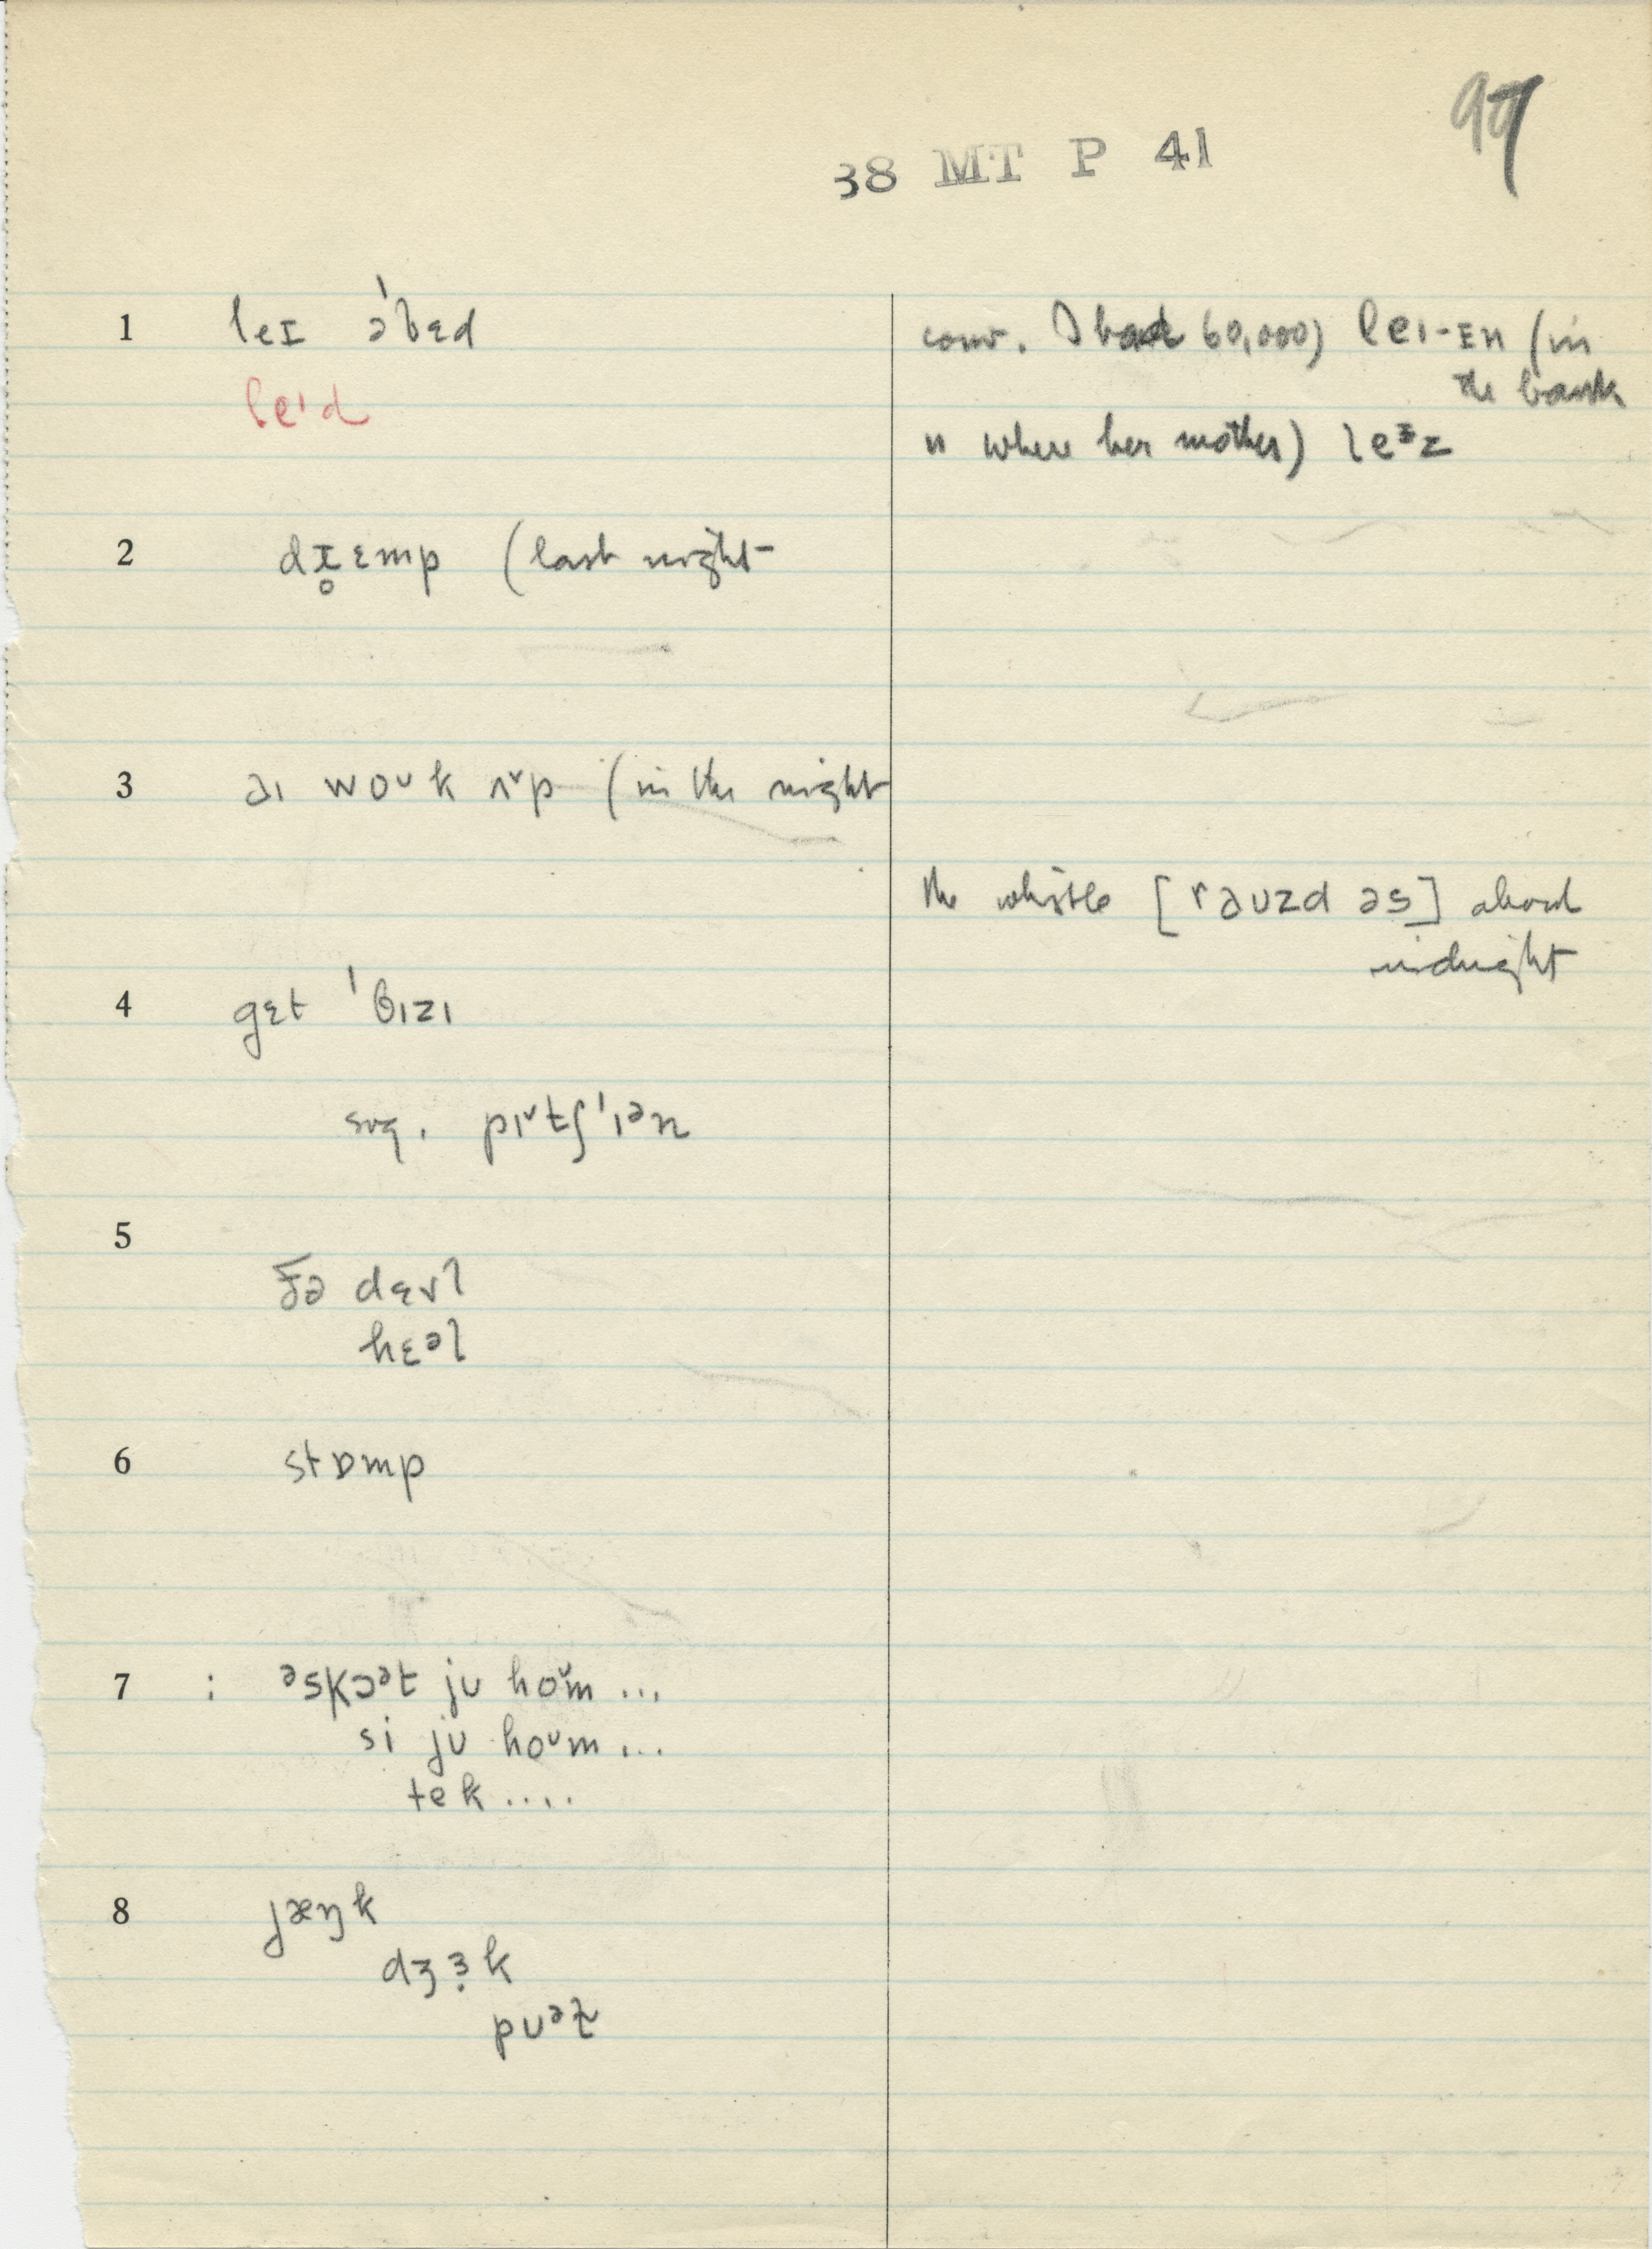 99
38 MT P 41
1 leɪ ə'bɛd
leᶦd
conv. I had 60,000) leɪ-ɪn (in
the bank
" where her mother) leᶦz
2 dɪ̥ɛmp (last night
3 aɪ woᶷk ʌ˅p (in the night
the whistle [rəʊzd əs] about
midnight
4 gɛt 'bɪzɪ
sug. pɪ˅tʃ'ɪᵊn
5
ðə dɛvl
hɛᵊl
6 stɒmp
7 : ᵊskɔᵊt jʊ hoᶷm ...
si jʊ hoᶷm ...
tek ....
8 jæŋk
dʒɜ̣k
pʊᵊt̬